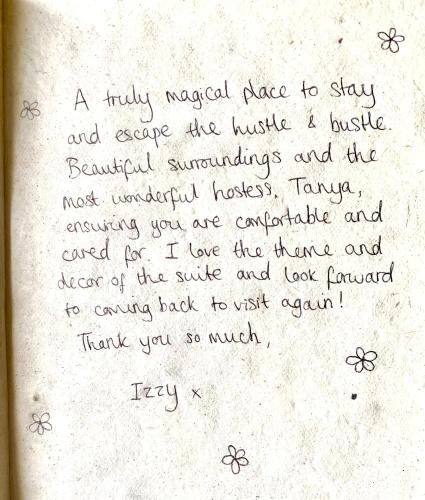 A truly magical place to stay
and escape the hustle & bustle.
Beautiful surroundings and the
most wonderful hostess, Tanya,
ensuring you are comfortable and
cared for. I love the theme and
decor of the suite and look forward
to coming back to visit again!
Thank you so much,
Izzy x